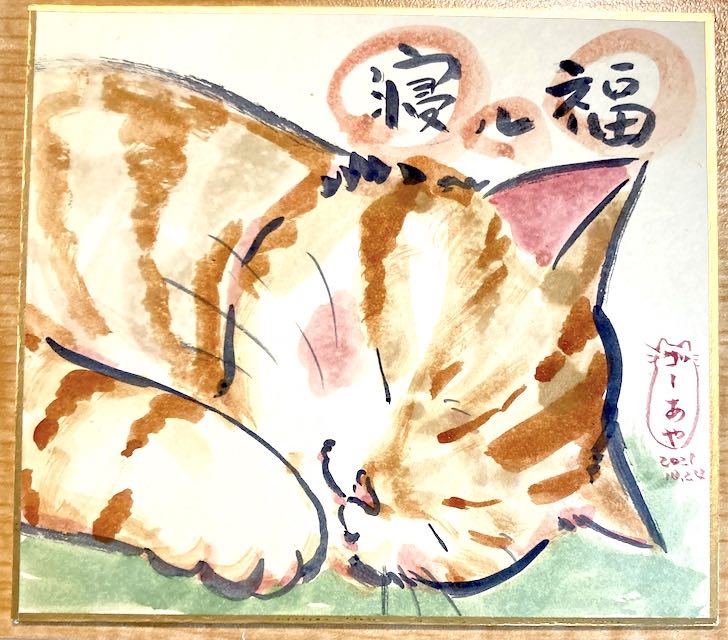 寝心福
がーあや
2021
10.24